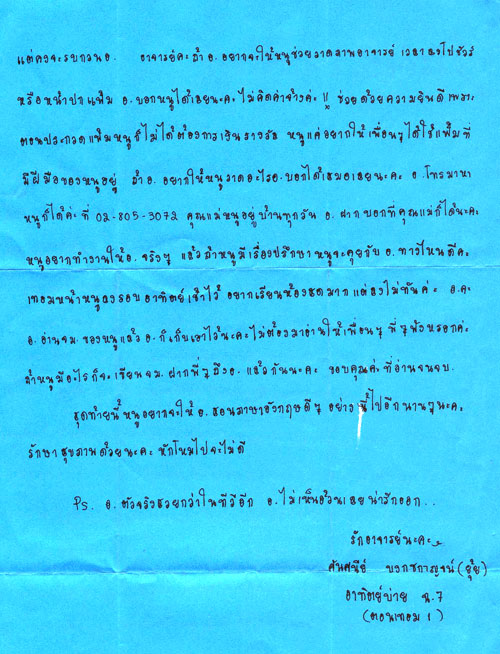 แต่คงจะรบกวนอ. อาจารย์คะ ถ้า อ. อยากจะให้หนูช่วยวาดภาพอาจารย์ เวลาลงโปชัวร์
หรือหน้าปกแฟ้ม อ. บอกหนูได้เลยนะคะ ไม่คิดค่าจ้างค่ะ !! ช่วยด้วยความยินดี เพราะ
ตอนประกวดแฟ้มหนูก็ไม่ได้ต้องการเงินรางวัล หนูแค่อยากให้เพื่อนๆ ได้ใช้แฟ้มที่
มีฝีมือของหนูอยู่ ถ้า อ. อยากให้หนูวาดอะไร อ. บอกได้เสมอเลยนะคะ อ. โทรมาหา
หนูก็ได้ค่ะ ที่ 02-805-3072 คุณแม่หนูอยู่บ้านทุกวัน อ. ฝากบอกที่คุณแม่ก็ได้นะคะ
หนูอยากทำงานให้อ. จริงๆ แล้วถ้าหนูมีเรื่องปรึกษา หนูจะคุยกับ อ. ทางไหนดีคะ
เทอมหน้าหนูลงรอบอาทิตย์เช้าไว้ อยากเรียนห้องสดมาก แต่ลงไม่ทันค่ะ อ.คะ
อ. อ่านจม. ของหนูแล้ว อ. ก็เก็บเอาไว้นะคะ ไม่ต้องมาอ่านให้เพื่อนๆ พี่ๆ ฟังหรอกค่ะ
ถ้าหนูมีอะไรก็จะเขียน จม. ฝากพี่ๆ ถึง อ. แล้วกันนะคะ ขอบคุณค่ะ ที่อ่านจนจบ
สุดท้ายนี้ หนูอยากจะให้ อ. สอนภาษาอังกฤษดีๆ อย่างนี้ไปอีกนานๆ นะคะ
รักษาสุขภาพด้วยนะคะ หักโหมไปจะไม่ดี
Ps. อ. ตัวจริงสวยกว่าในทีวีอีก อ. ไม่เห็นอ้วนเลย น่ารักออก..
รักอาจารย์นะคะ
ศันศนีย์ (อุ้ย)
อาทิตย์บ่าย ฉ.7
(ตอนเทอม 1)